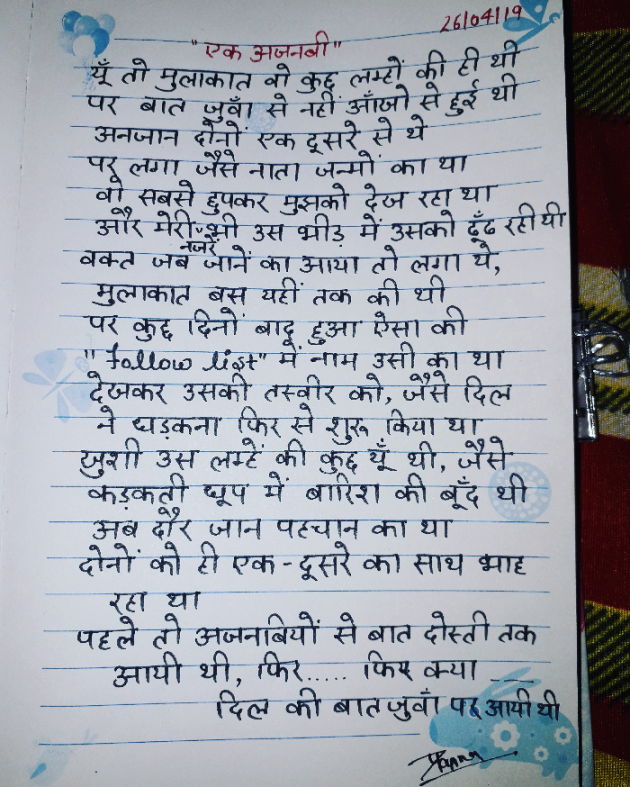 26/04/19
"एक अजनबी"
यूँ तो मुलाकात वो कुछ लम्हों की ही थी
पर बात जुवाँ से नहीं आँखो से हुई थी
अनजान दोनों एक दूसरे से थे
पर लगा जैसे नाता जन्मों का था
वो सबसे छुपकर मुझको देख रहा था
और मेरी नजरें भी उस भीड़ में उसको ढूँढ रही थी
वक्त जब जानें का आया तो लगा ये,
मुलाकात बस यहीं तक की थी
पर कुछ दिनों बाद हुआ ऐसा की
"follow list" में नाम उसी का था
देखकर उसकी तस्वीर को, जैसे दिल
ने धड़कना फिर से शुरू किया था
खुशी उस लम्हें की कुछ यूँ थी, जैसे
कड़कती धूप में बारिश की बूँद थी
अब दौर जान पहचान का था
दोनों को ही एक-दूसरे का साथ भाह
रहा था
पहले तो अजनबियों से बात दोस्ती तक
आयी थी, फिर..... फिर क्या ___
दिल की बात जुवाँ पर आयी थी